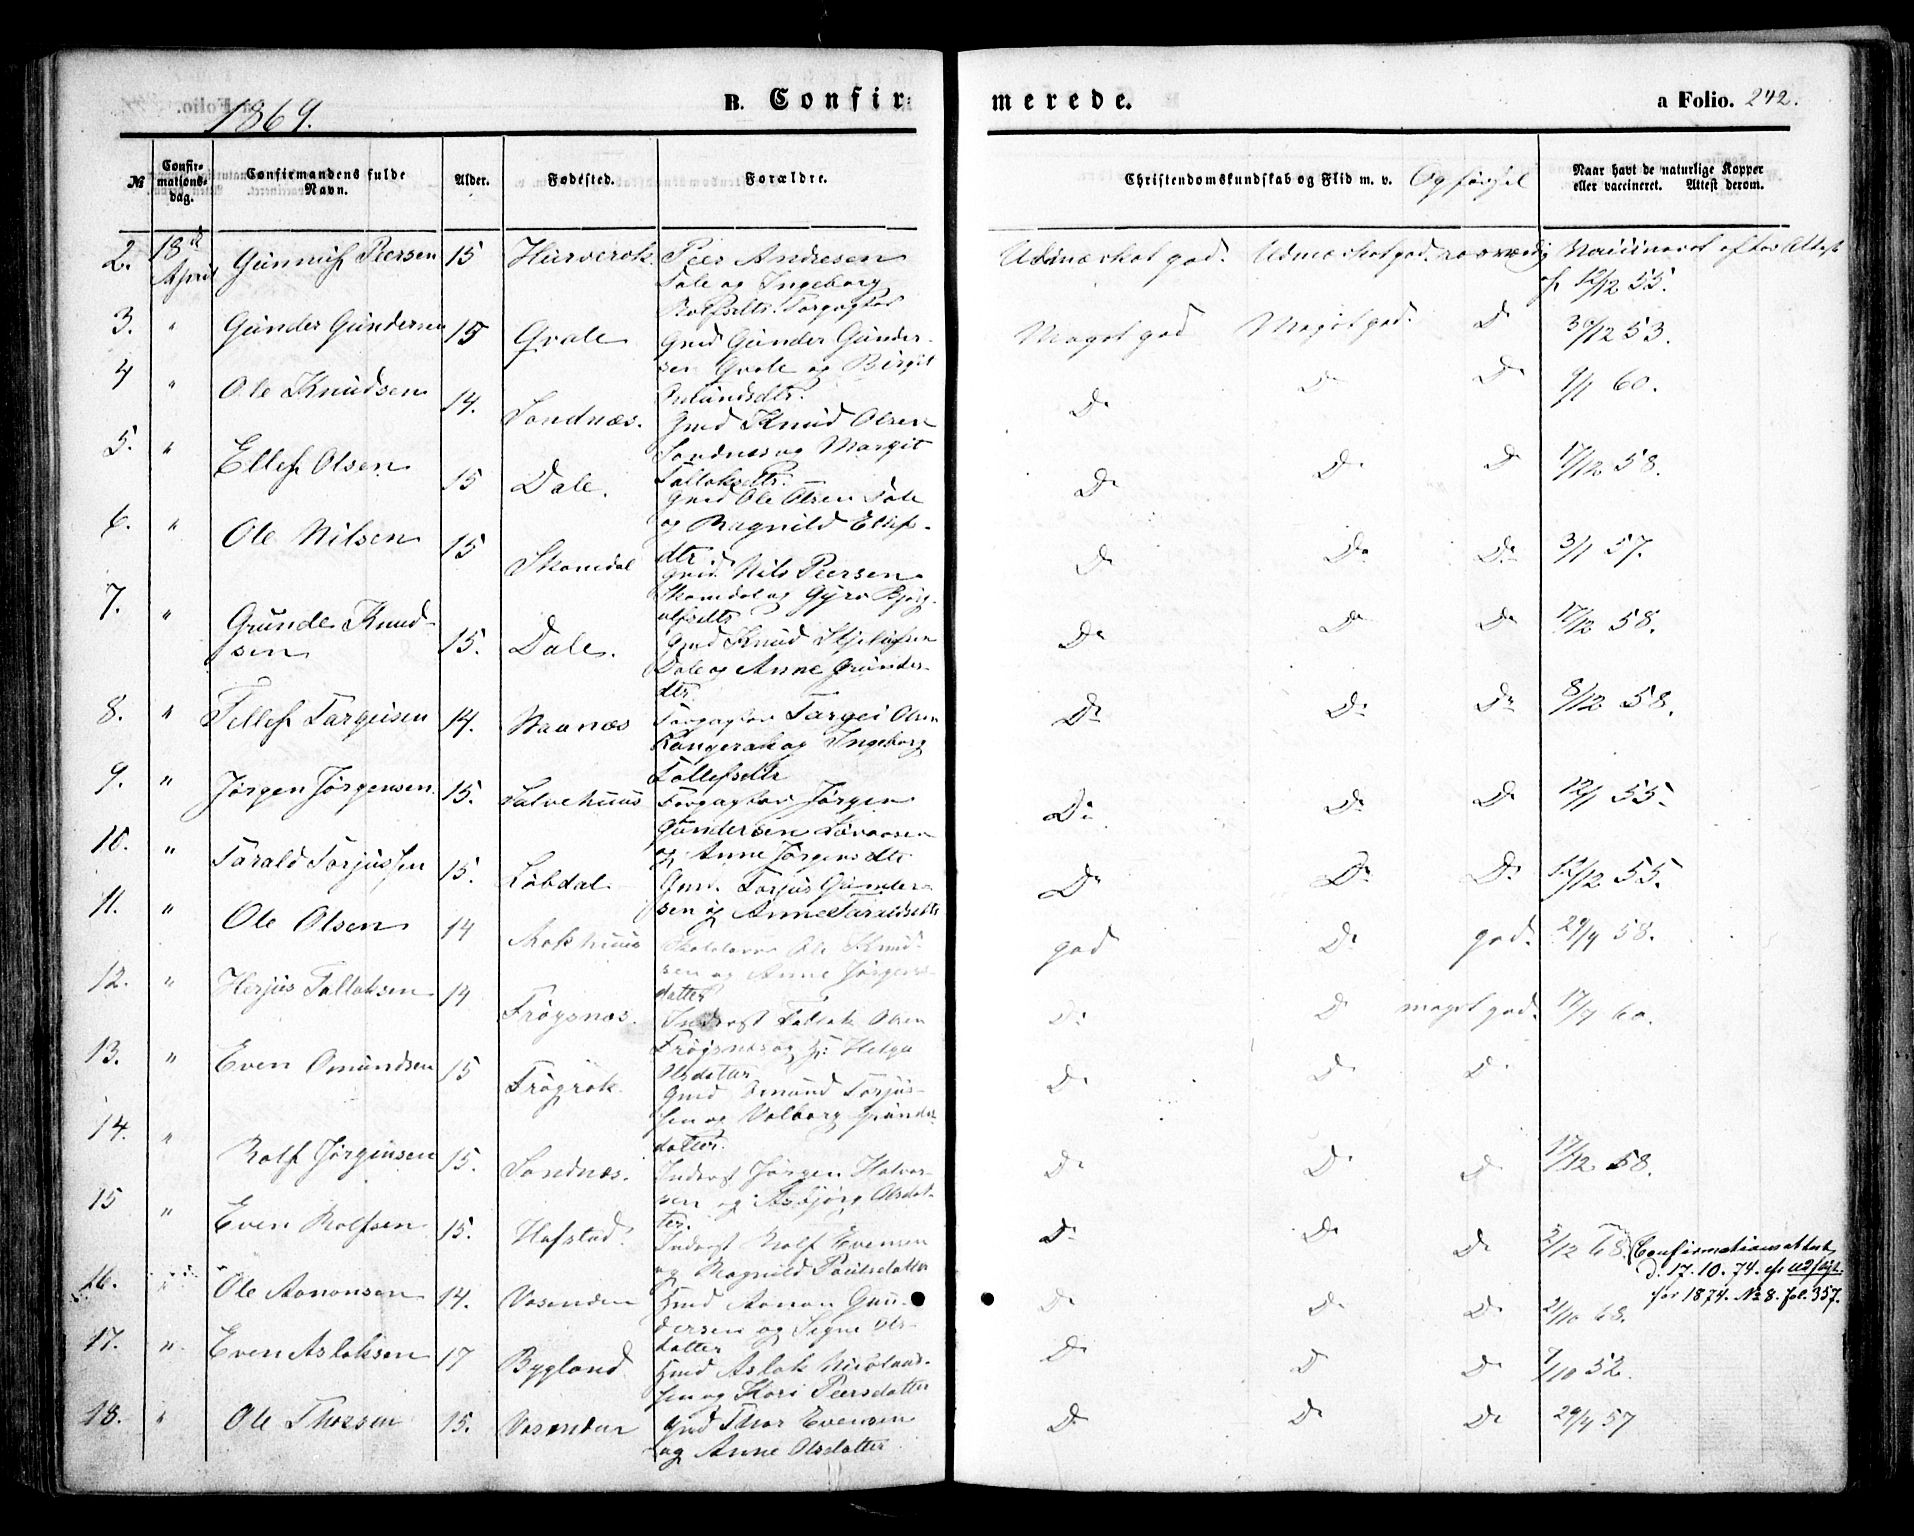 1869.
B. Confirmerede.
a Folio. 242.
№
Confirmationsdag.
Confirmandens fulde Navn.
Alder.
Fødested.
Forældre.
Christendomskundskab og Flid m. v. Opførsel
Naar havt de naturlige Kopper eller vaccineret. Attest derom.
2. 18de April Gunnuf Peersen 15 Hurverok. Peer Andresen
Dale og Ingeborg
Rolfsdtr.
Udmærket god. Udmærket god. Vaccineret efter Attest
af 12/12 55.
3. " Gunder Gundersen 15 Qvale Gmd Gunder Gunder-
sen Qvale og Birgit
Omundsdtr.
Meget god Meget god. Do 30/12 53.
4 " Ole Knudsen 14. Sandnæs. Gmd Knud Olsen
Sandnæs og Margit
Tallaksdtr.
Do Do Do 9/1 60.
5. " Ellef Olsen 15 Dale. Gmd Ole Olsen Dale
og Ragnild Ellefs-
dtr.
Do Do Do 17/12 58.
6. " Ole Nilsen 15 Skomdal Gmd. Nils Peersen
Skomdal og Gyro Bjørg-
ulfsdtr
Do Do Do 3/1 57.
7. " Gunder Knud-
sen 15. Dale. Gmd Knud
Dale og Anne Gunders-
dtr.
Do Do Do 17/12 58.
8. " Tellef Targeisen 14. Naanæs Targei Olsen
Langerak og Ingeborg
Tellefsdtr
Do Do Do 8/12 58.
9. " Jørgen Jørgensen. 15. Salvehuus Jørgen
Gundersen
og Anne Jørgensdtr.
Do Do Do 12/1 55.
10. " Tarald Torjussen 15. Løbdal Gmd. Torjus Gunder-
sen og Anne Taraldsdtr
Do Do Do 12/12 55.
11. " Ole Olsen 14 Ole Knud-
sen og Anne Jørgens-
datter
god Do god. 29/4 58.
12. " Herjus Tallaksen 14 Frøysnæs. Inderst Tallak Olsen
Frøysnæs og H: Helga
Olsdatter
Do Do meget god. 17/7 60.
13. " Even Omundsen 15 Frøyrak. Gmd Omund Torjus-
sen og Valborg Gunder
datter.
Do Do Do
14. " Rolf Jørgensen 15. Sandnæs. Inderst Jørgen Halvor-
sen og Asbjørg Olsdat-
ter.
Do Do Do 17/12 58.
15 " Even Rolfsen 15. Hafstad. Inderst Rolf Evensen
og Ragnild Paulsdatter
Do Do Do 5/12 68. Confirmationsattest
d. 17. 10. 74. cfr udflyt.
for 1874. No 8. fol. 357.
16. " Ole Aanonsen 14. Vasenden Hmd Aanon Gun-
dersen og Signe Ols-
datter
Do Do Do 21/10 68.
17. " Even Aslaksen 17 Bygland Hmd Aslak
sen og Kari Peersdatter
Do Do Do 7/10 52.
18. " Ole Thorsen 15. Vasenden Gmd Thor Evensen
og Anne Olsdatter
Do Do Do 29/4 57